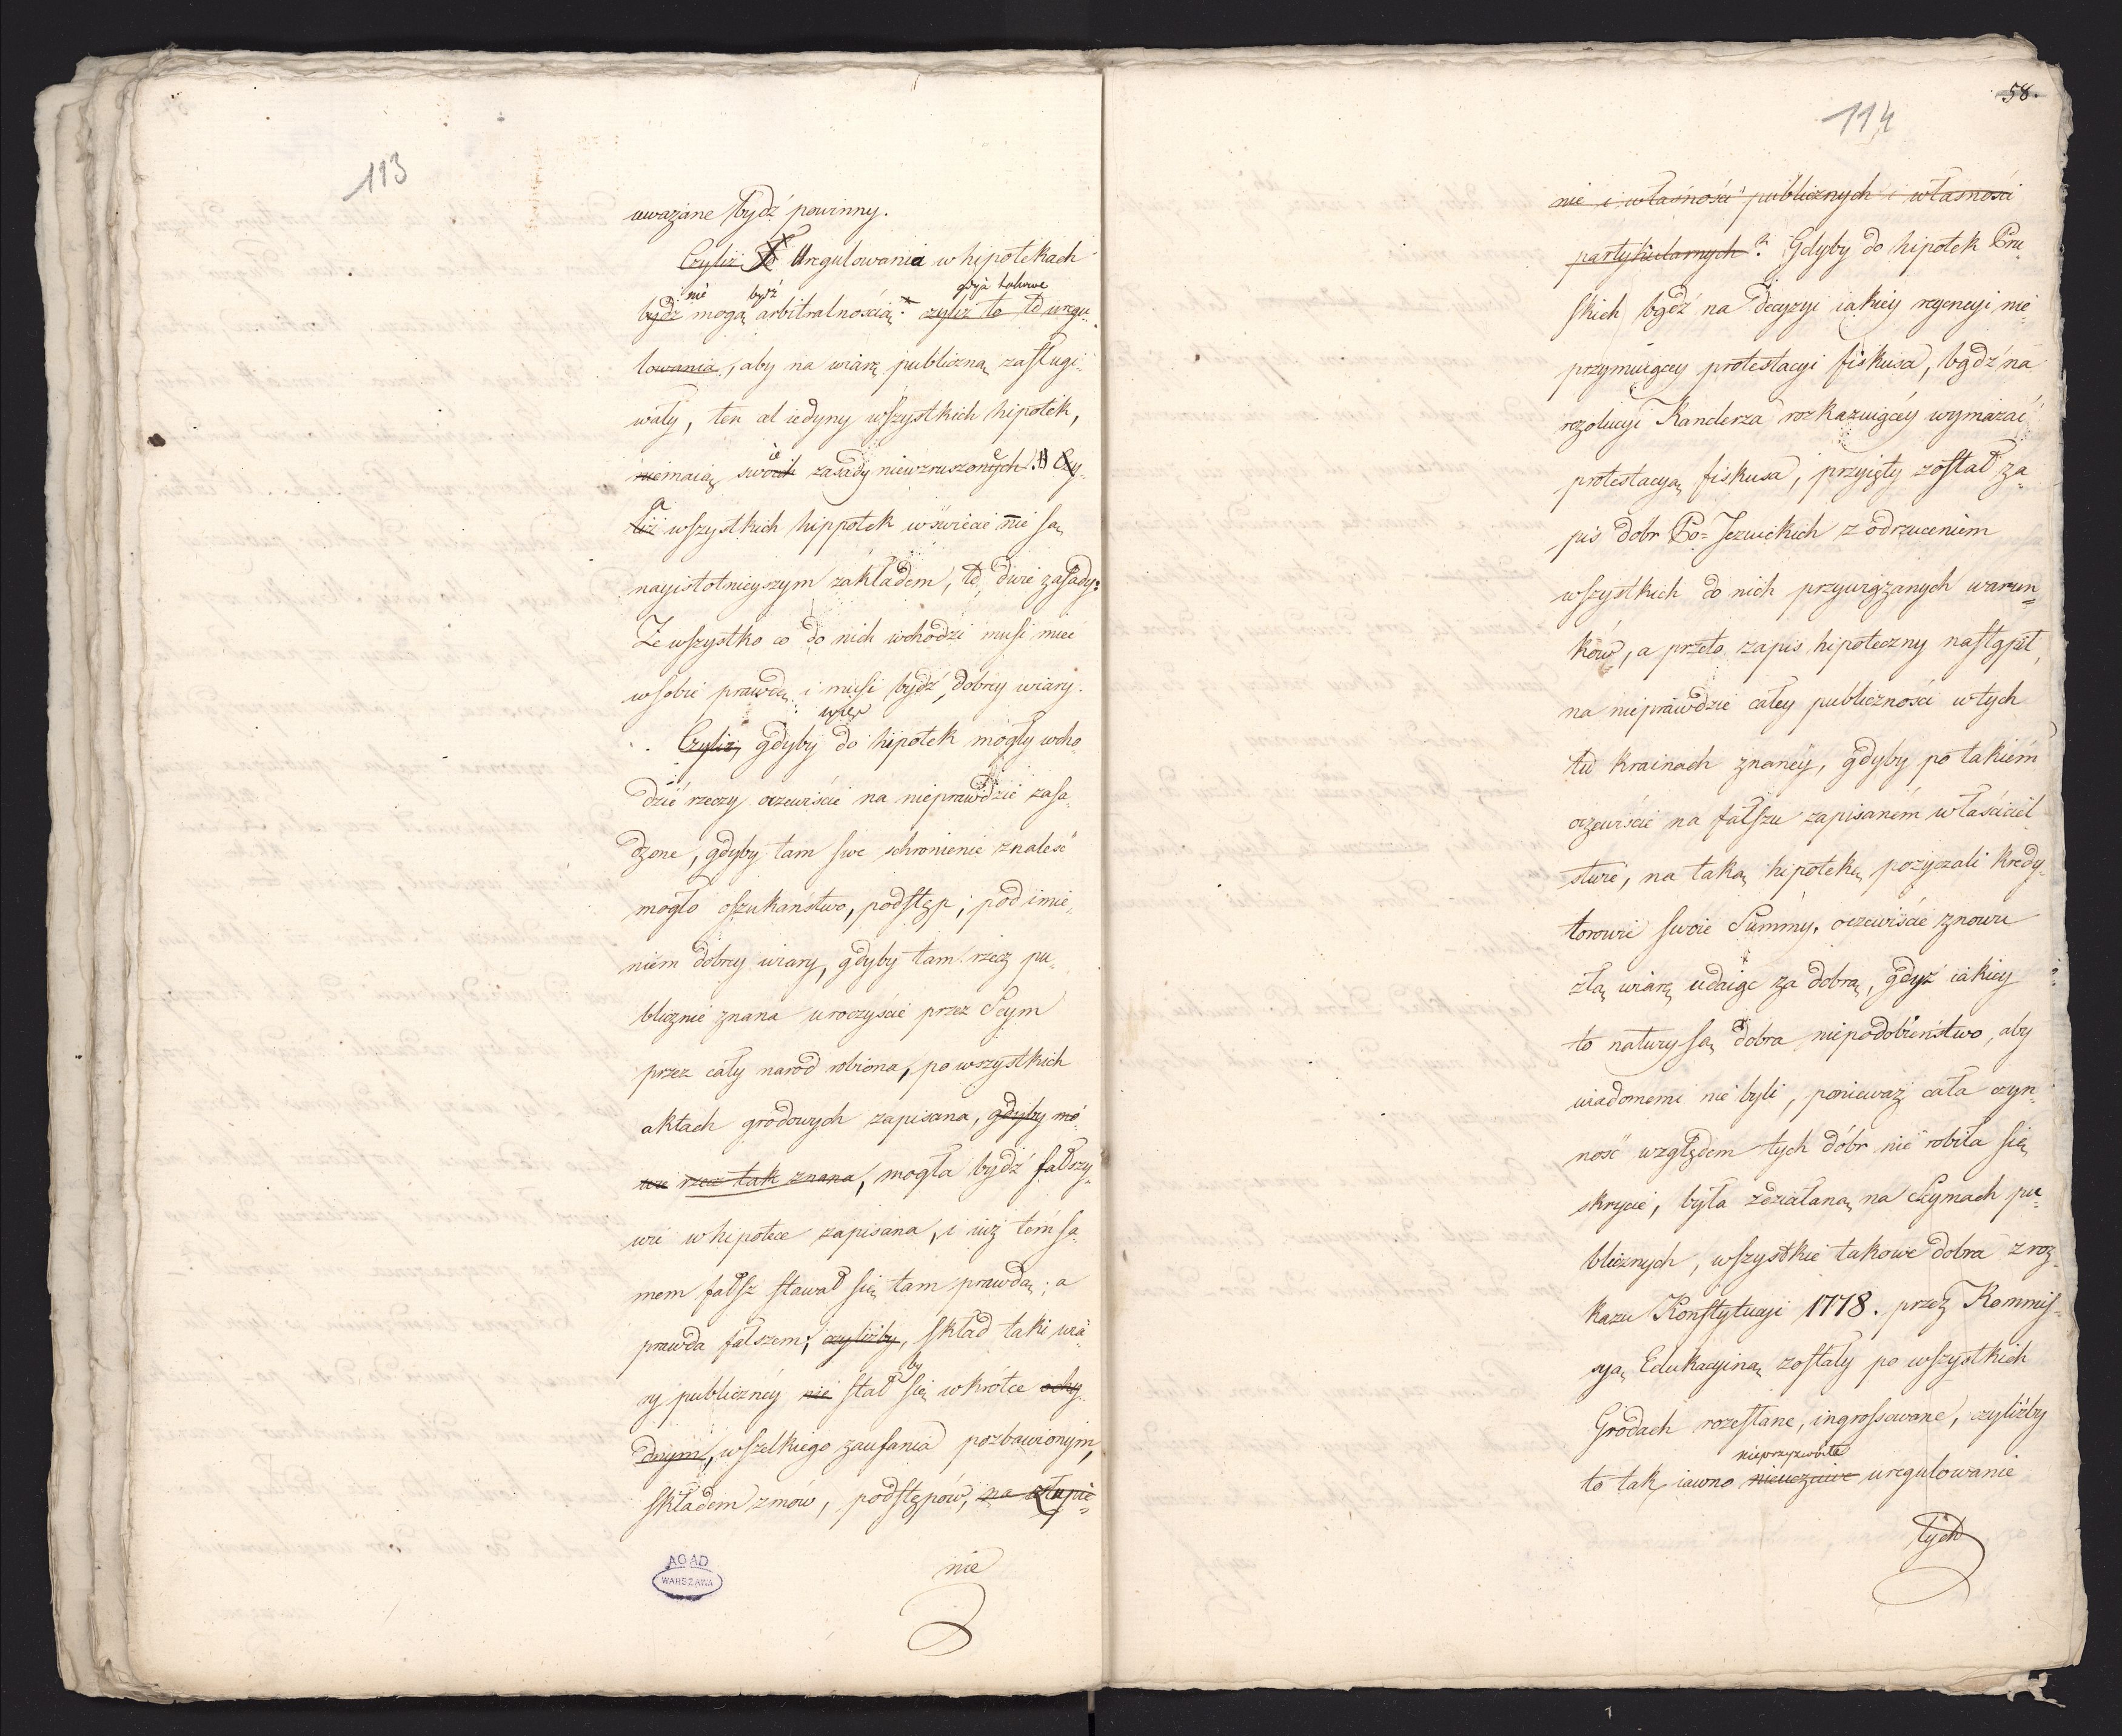 113
uważane bydź powinny.
Czyliż to Uregulowania w hipotekach
nie bydź gdyż takowe
bydź mogą arbitralnością? czyliż te to uregu-
lowania, aby na wiarę publiczną zasługi-
wały, ten al iedyny wszystkich hipotek,
niemaią swoich zasady niewzruszonych? Czy-
liż wszystkich hippotek w świecie nie są
nayistotnieyszym zakładem, te dwie zasady:
Że wszystko co do nich wchodzi musi mieć
w sobie prawdę i musi bydź dobrey wiary.
więc
Czyliż, gdyby do hipotek mogły wcho-
dzić rzeczy oczewiście na nieprawdzie zasa-
dzone, gdyby tam swe schronienie znaleść
mogło oszukaństwo, podstęp, pod imie-
niem dobrey wiary, gdyby tam rzecz pu-
blicznie znana uroczyście przez Seym
przez cały naród robiona, po wszystkich
aktach grodowych zapisana, gdyby mó-
wię rzecz tak znana, mogła bydź fałszy-
wie w hipotece zapisana, i iuż tem sa-
mem fałsz stawał się tam prawdą; a
prawda fałszem; czyliżby, skład taki wia-
by
ry publiczney nie stał się wkrótce ohy-
dnym, wszelkiego zaufania pozbawionym,
składem zmów, podstępów, na złupie-
nie
AGAD
WARSZAWA
58.
114
nie i własności publicznych i własności
partykularnych? Gdyby do hipotek Pru-
skich bądź na decyzyi iakiey regencyi nie
przymuiącey protestacyi fiskusa, bądź na
rezolucyi Kanclerza rozkazuiącéy wymazać
protestacyą fiskusa, przyięty został za-
pis dóbr Po-Jezuickich z odrzuceniem
wszystkich do nich przywiązanych warun-
ków, a przeto zapis hipoteczny nastąpił
na nieprawdzie całey publiczności w tych
tu krainach znanéy, gdyby po takiem
oczewiście na fałszu zapisaném właściciel-
stwie, na taką hipotekę pożyczali Kredy-
torowie swoie Summy, oczewiście znowu
złą wiarę udaiąc za dobrą, gdyż iakiey
to natury są dobra niepodobieństwo, aby
wiadomemi nie byli, ponieważ cała czyn-
ność względem tych dóbr nie robiła się
skrycie, była zdziałaną na Seymach pu-
blicznych, wszystkie takowe dobra z roz-
kazu Konstytucyi 1778. przez Kommis-
syą Edukacyiną zostały po wszystkich
Grodach rozesłane, ingrossowane, czyliżby
nieprzyzwoite
to tak iawno nieuczciwe uregulowanie
tych